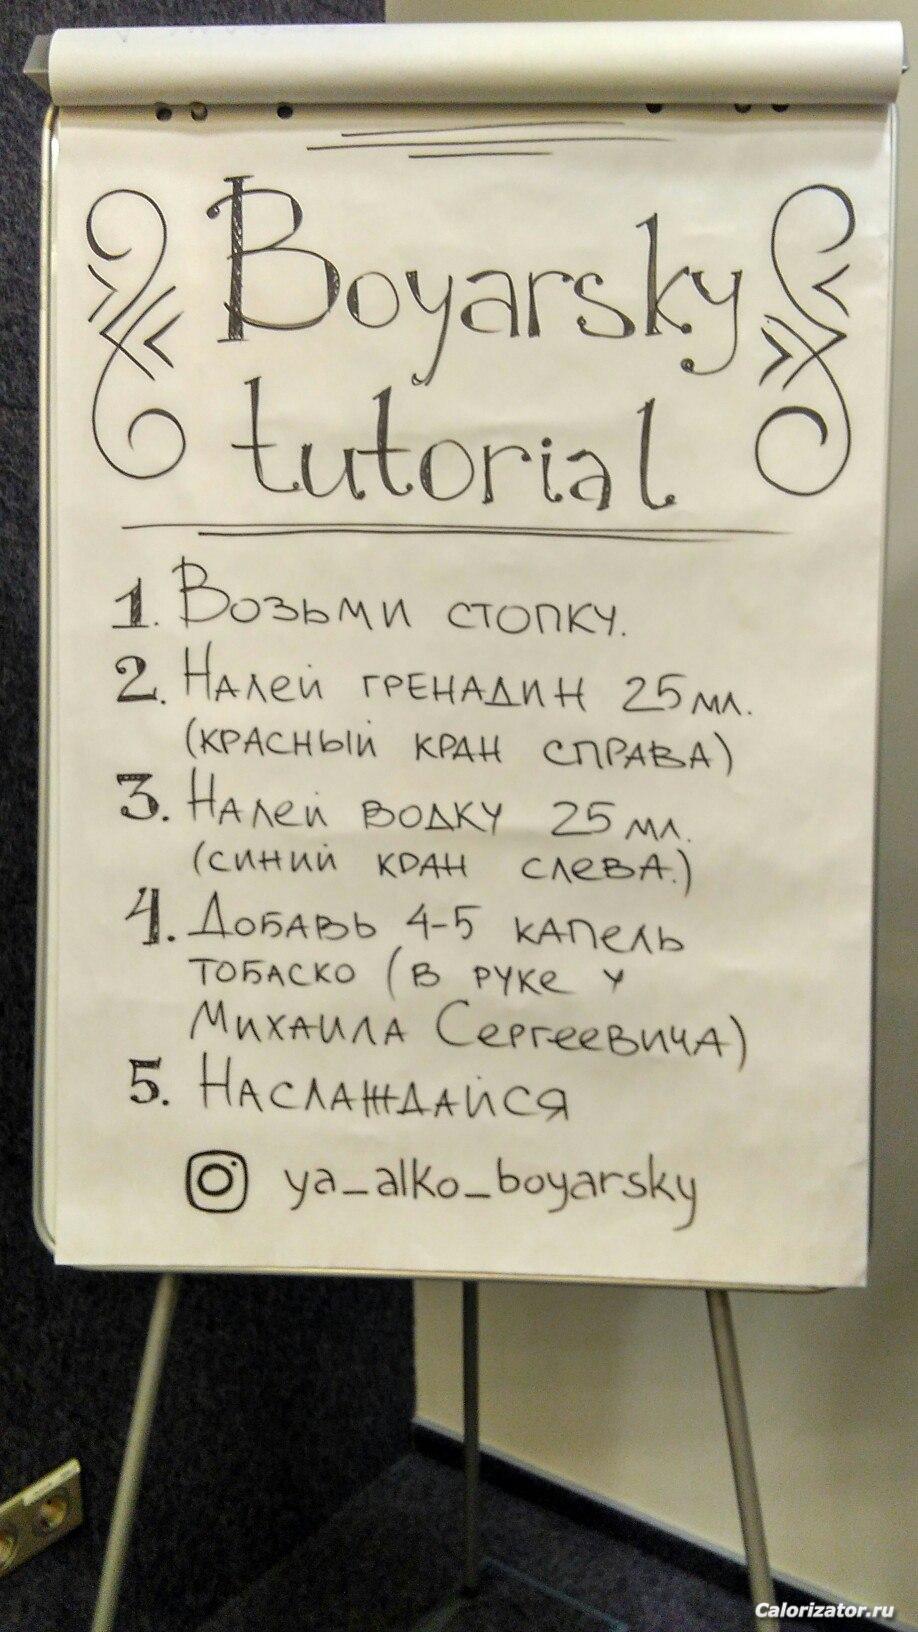 Boyarsky
tutorial
1. Возьми стопку.
2. Налей гренадин 25 мл.
(красный кран справа)
3. Налей водку 25 мл.
(синий кран слева.)
4. Добавь 4-5 капель
тобаско (в руке у
Михаила Сергеевича)
5. Наслаждайся
ya_alko_boyarsky
Calorizator.ru